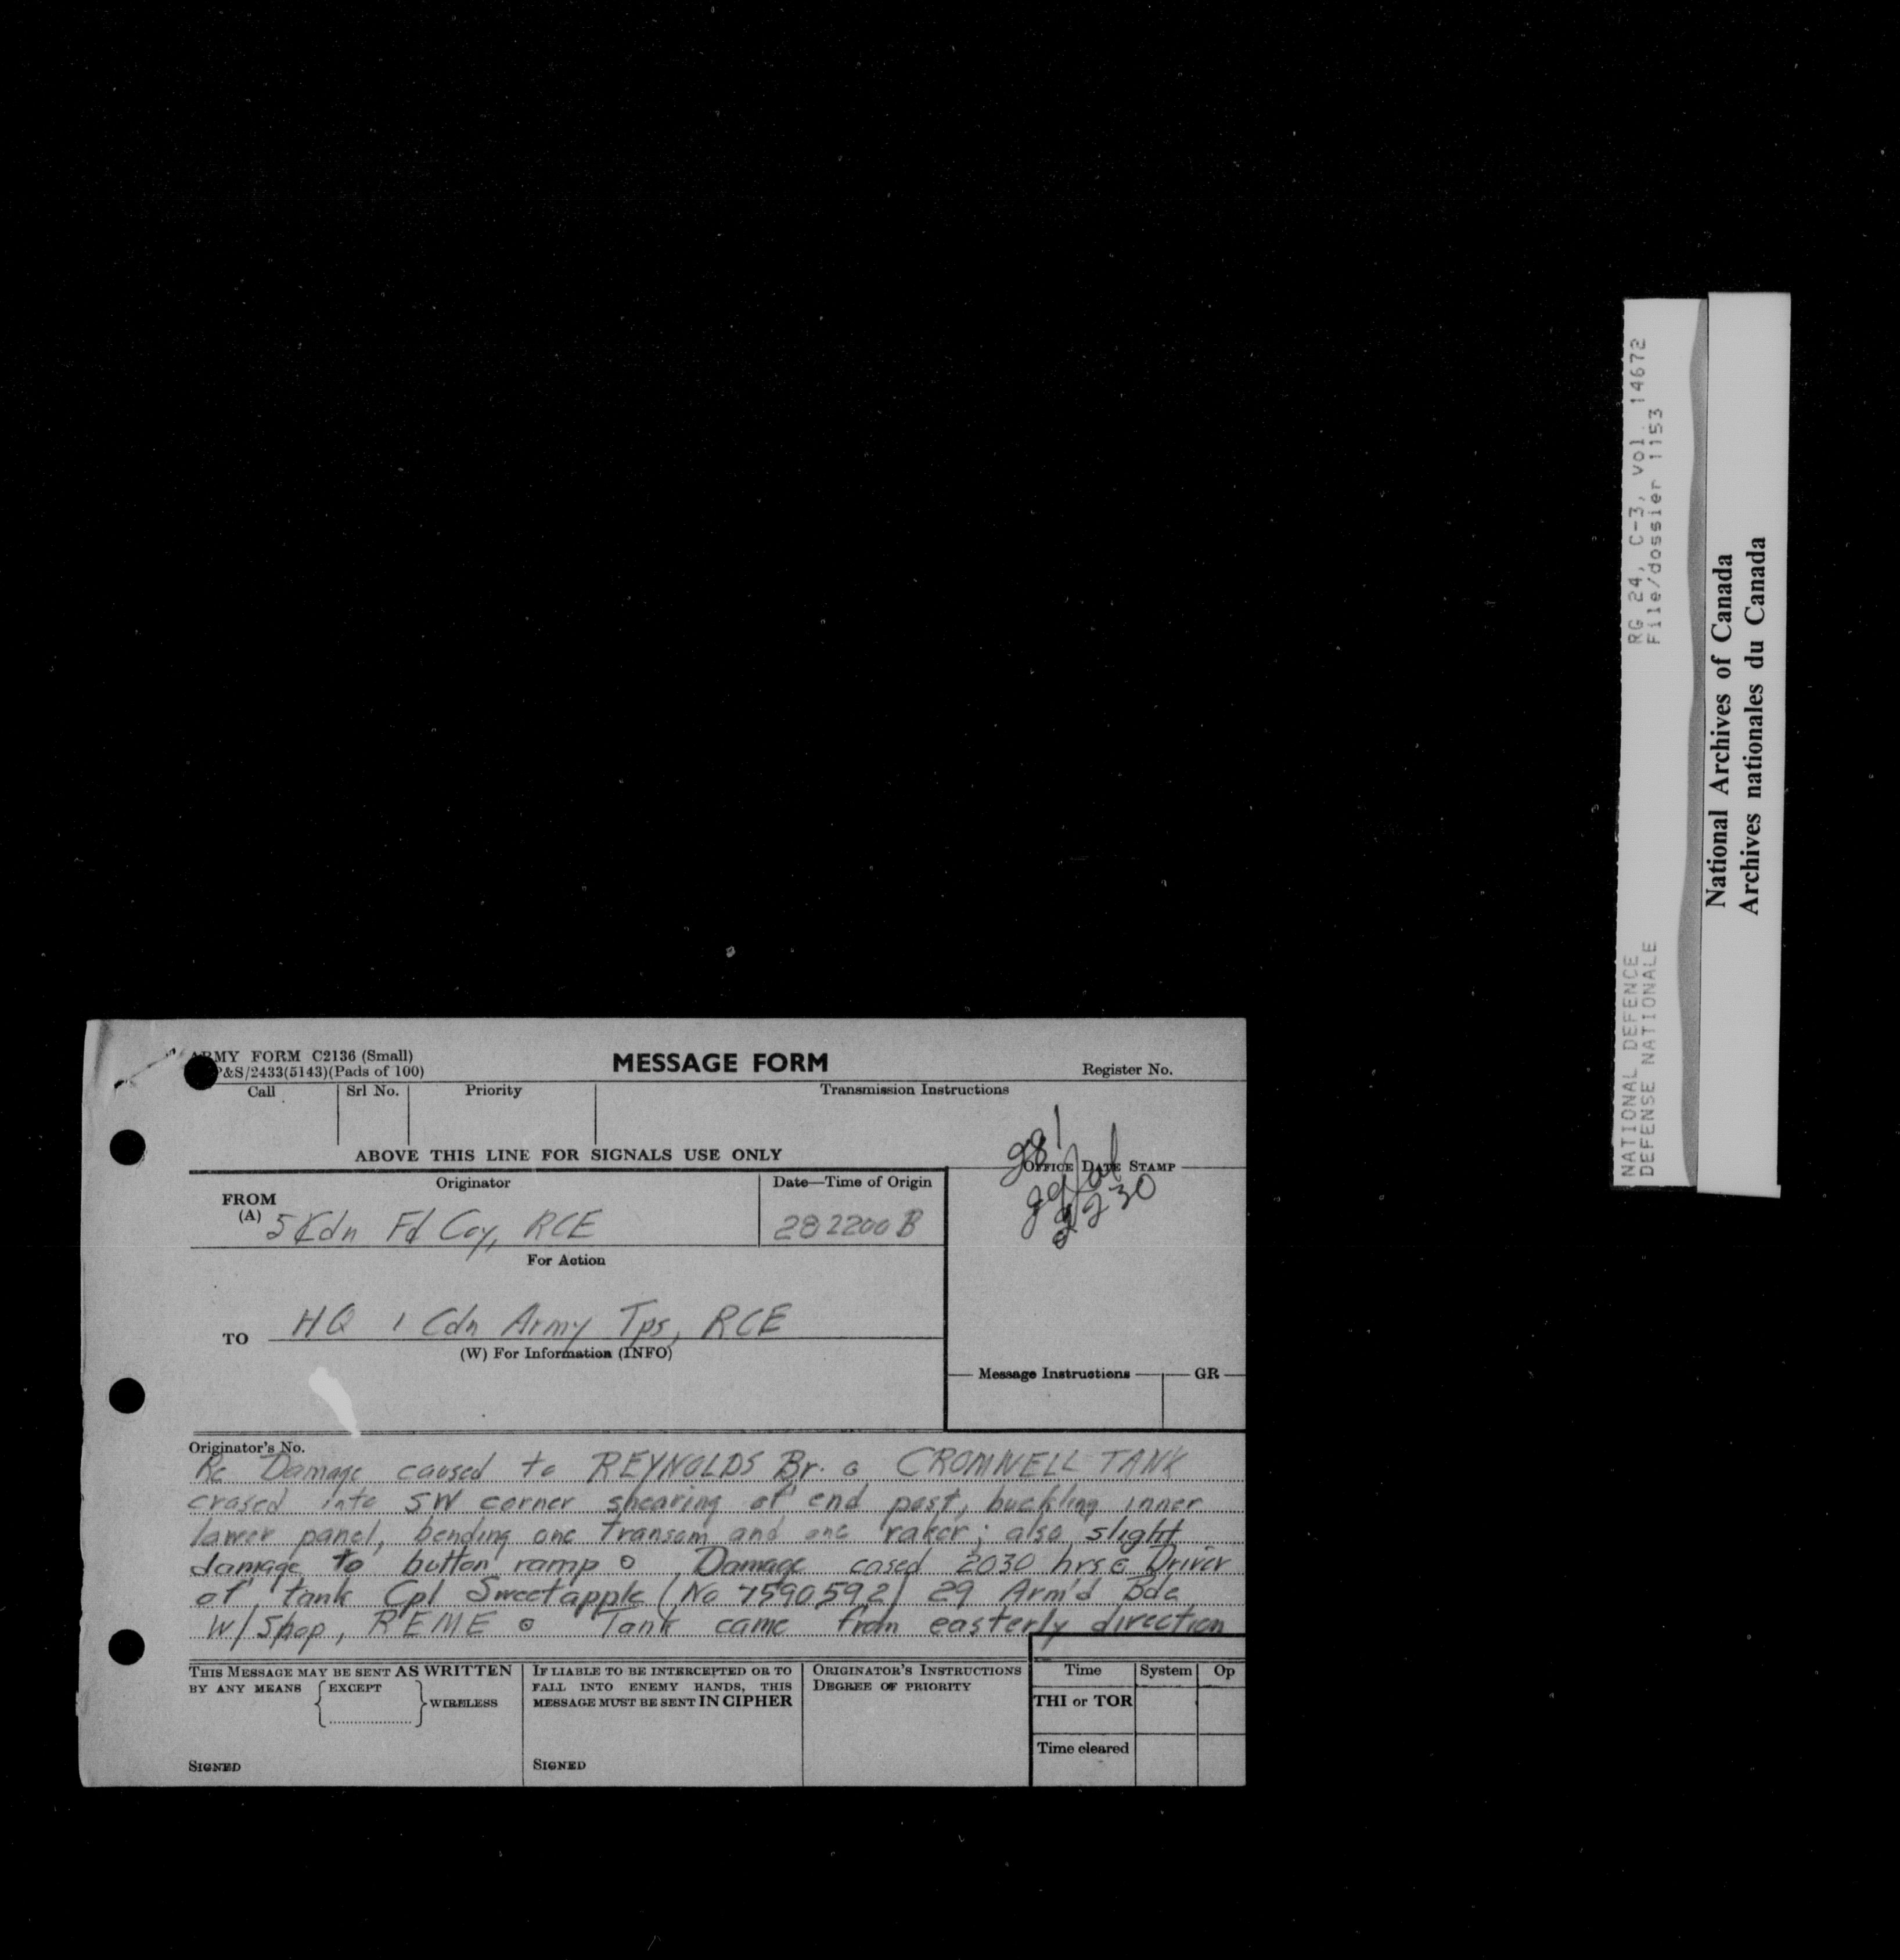 ARMY FORM C2136 (Small)
P&S/2433(5143)(Pads of 100)
MESSAGE FORM
Register No.
Call Srl No. Priority Transmission Instructions
ABOVE THIS LINE FOR SIGNALS USE ONLY
28
OFFICE DATE STAMP
2230
Originator Date—Time of Origin
FROM
(A) 5 Cdn Fd Coy, RCE 282200 B
For Action
TO HQ 1 Cdn Army Tps, RCE
(W) For Information (INFO)
Message Instructions GR
Originator's No.
Re Damage caused to REYNOLDS Br. o CROMWELL TANK
crased into SW corner shearing of end post, buckling inner
lower panel, bending one transom and one raker; also slight
damage to button ramp o Damage cased 2030 hrs o Driver
of tank Cpl Sweetapple (No 7590592) 29 Arm'd Bde
W/Shop, REME o Tank came from easterly direction
THIS MESSAGE MAY BE SENT AS WRITTEN
BY ANY MEANS { EXCEPT } WIRELESS
SIGNED
IF LIABLE TO BE INTERCEPTED OR TO
FALL INTO ENEMY HANDS, THIS
MESSAGE MUST BE SENT IN CIPHER
SIGNED
ORIGINATOR'S INSTRUCTIONS
DEGREE OF PRIORITY
Time System Op
THI or TOR
Time cleared
RG 24, C-3, vol. 14672
File/dossier 1153
NATIONAL DEFENCE
DEFENSE NATIONALE
National Archives of Canada
Archives nationales du Canada